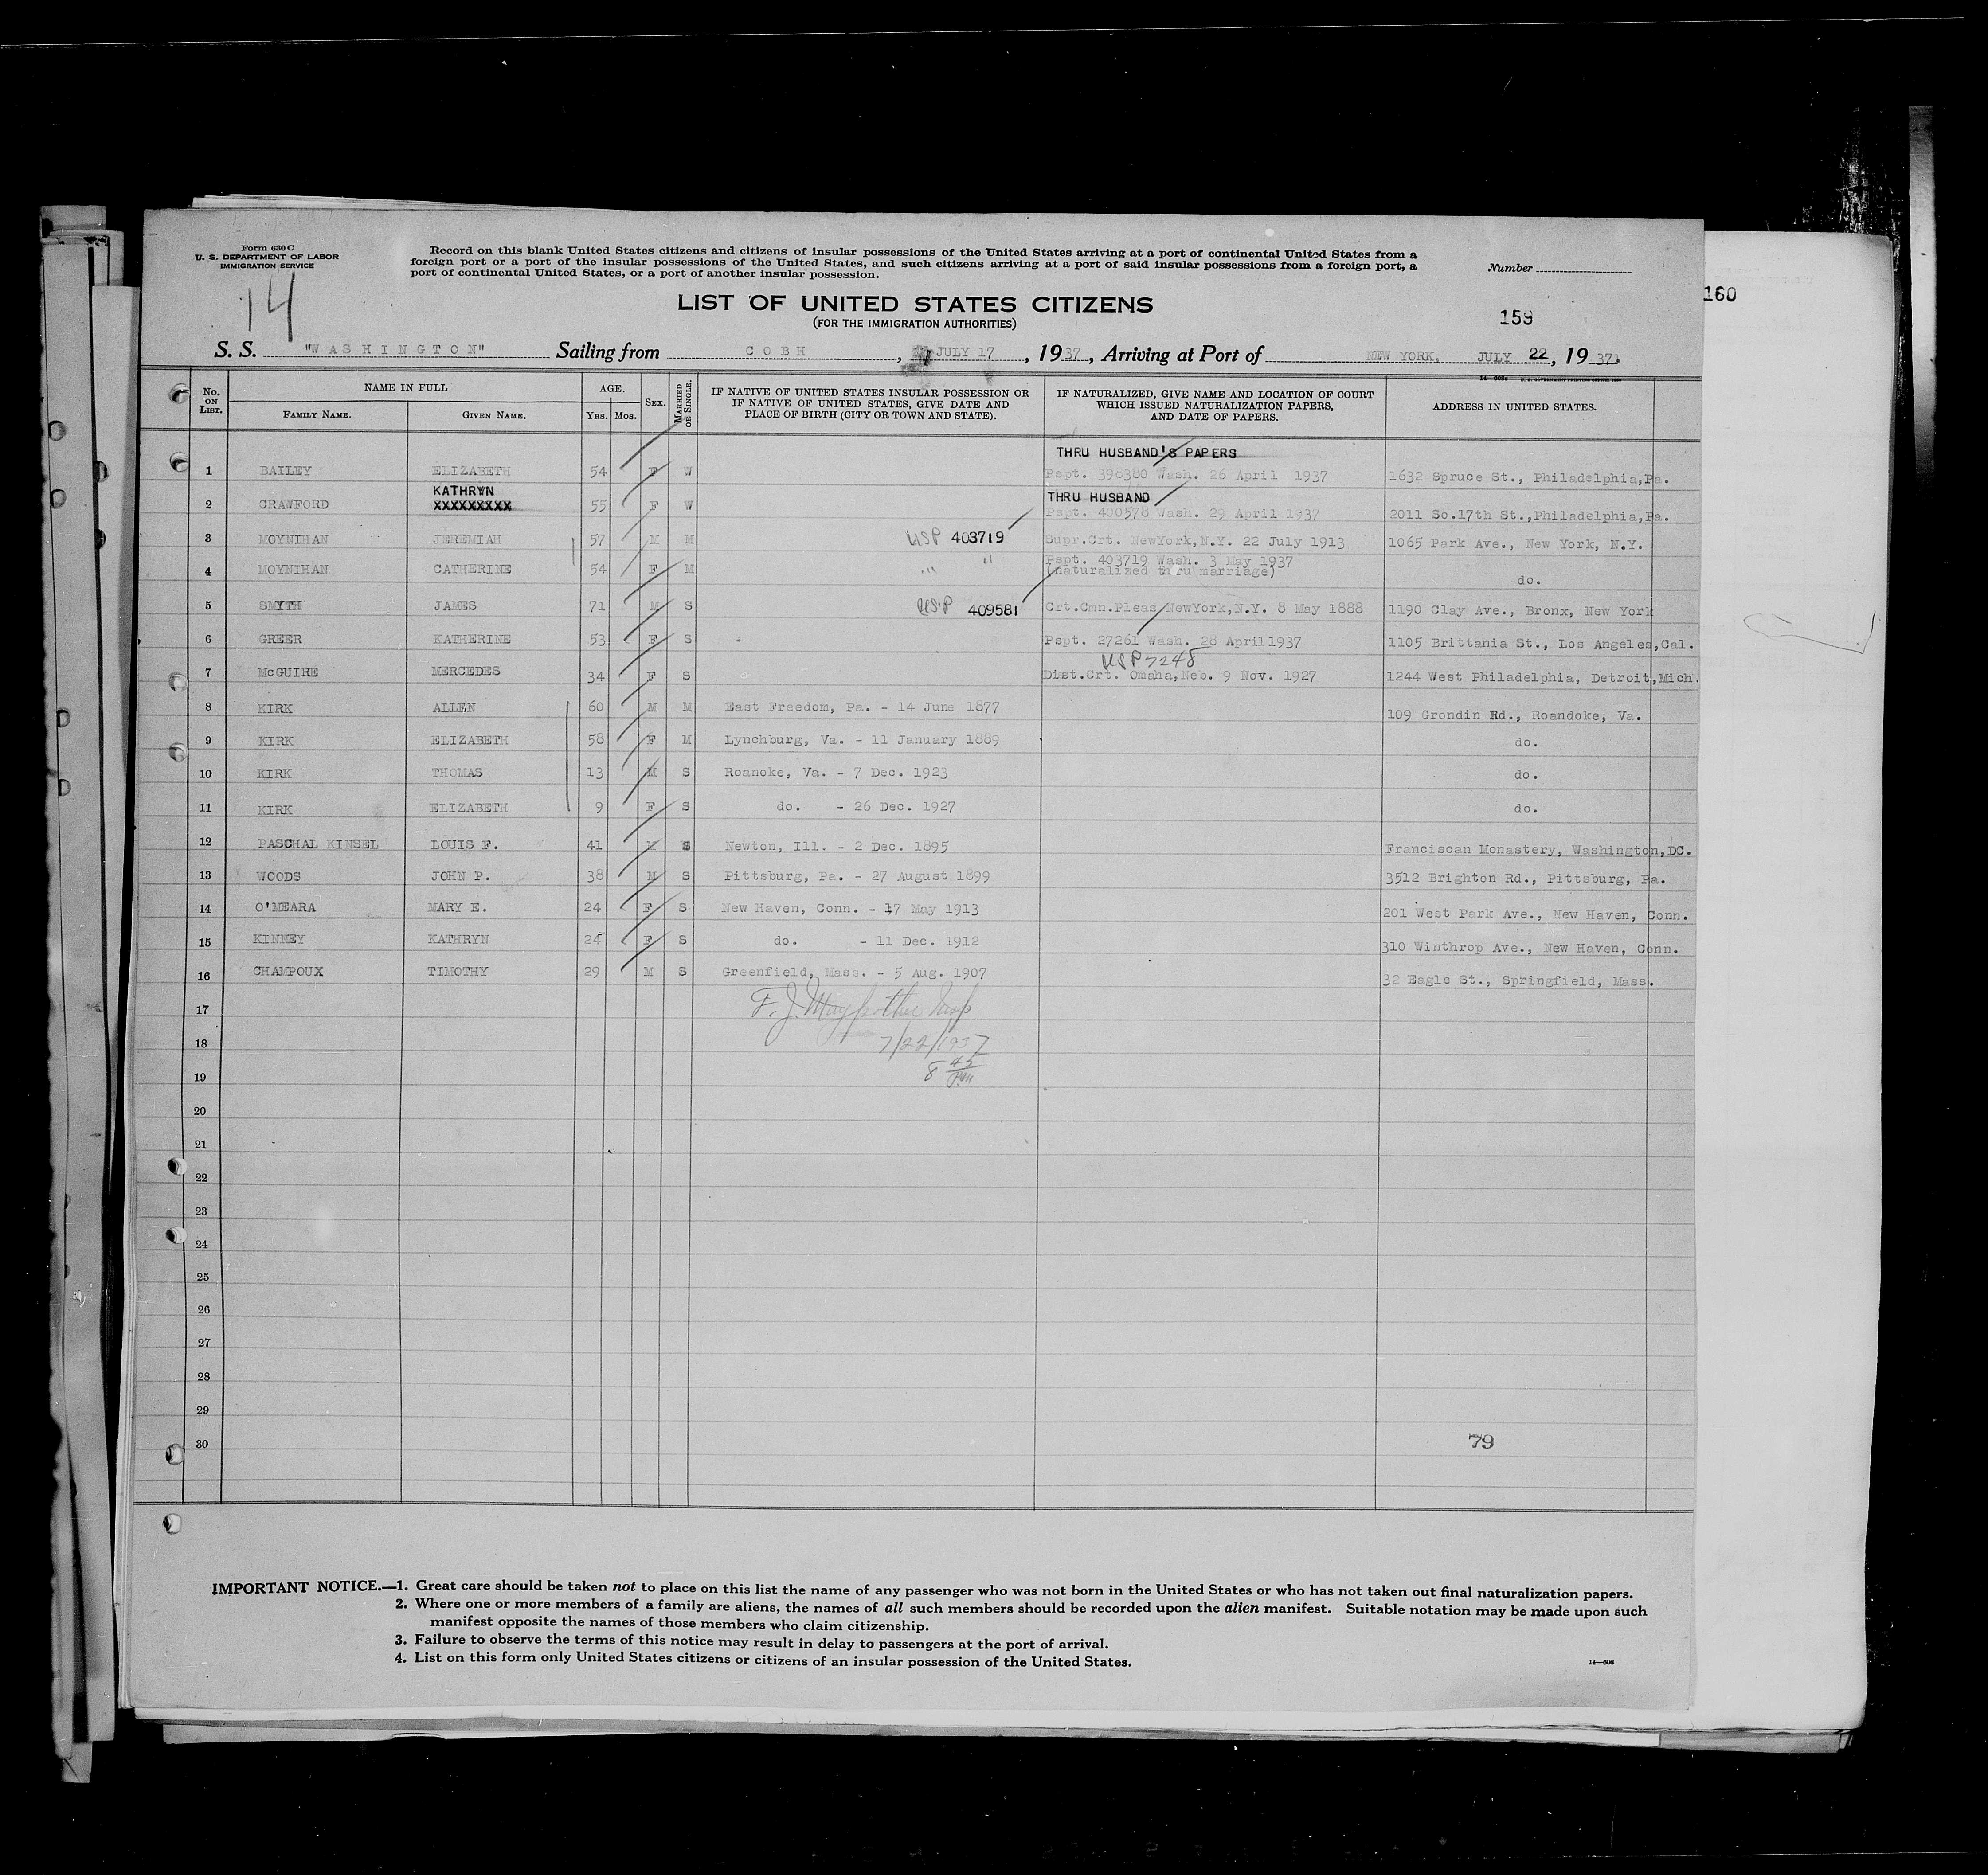 Form 630 C
U. S. DEPARTMENT OF LABOR
IMMIGRATION SERVICE
14
Record on this blank United States citizens and citizens of insular possessions of the United States arriving at a port of continental United States from a
foreign port or a port of the insular possessions of the United States, and such citizens arriving at a port of said insular possessions from a foreign port, a
port of continental United States, or a port of another insular possession.
Number
160
LIST OF UNITED STATES CITIZENS
(FOR THE IMMIGRATION AUTHORITIES)
159
S. S. "WASHINGTON" Sailing from COBH, JULY 17, 1937, Arriving at Port of NEW YORK, JULY 22, 1937
No. ON LIST. NAME IN FULL FAMILY NAME. GIVEN NAME. AGE. YRS. MOS. SEX. MARRIED OR SINGLE. IF NATIVE OF UNITED STATES INSULAR POSSESSION OR IF NATIVE OF UNITED STATES, GIVE DATE AND PLACE OF BIRTH (CITY OR TOWN AND STATE). IF NATURALIZED, GIVE NAME AND LOCATION OF COURT WHICH ISSUED NATURALIZATION PAPERS, AND DATE OF PAPERS. ADDRESS IN UNITED STATES.
THRU HUSBAND'S PAPERS
1 BAILEY ELIZABETH 54 F W Pspt. 398380 Wash. 26 April 1937 1632 Spruce St., Philadelphia,Pa.
KATHRYN THRU HUSBAND
2 CRAWFORD XXXXXXXXX 55 F W Pspt. 400578 Wash. 29 April 1937 2011 So.17th St.,Philadelphia,Pa.
3 MOYNIHAN JEREMIAH 57 M M USP 403719 Supr.Crt. NewYork,N.Y. 22 July 1913 1065 Park Ave., New York, N.Y.
Pspt. 403719 Wash. 3 May 1937
4 MOYNIHAN CATHERINE 54 F M " " (naturalized thru marriage) do.
5 SMYTH JAMES 71 M S USP 409581 Crt.Cmn.Pleas NewYork,N.Y. 8 May 1888 1190 Clay Ave., Bronx, New York
6 GREER KATHERINE 53 F S Pspt. 27261 Wash. 28 April1937 1105 Brittania St., Los Angeles,Cal.
USP 7248
7 McGUIRE MERCEDES 34 F S Dist.Crt. Omaha,Neb. 9 Nov. 1927 1244 West Philadelphia, Detroit,Mich.
8 KIRK ALLEN 60 M M East Freedom, Pa. - 14 June 1877 109 Grondin Rd., Roandoke, Va.
9 KIRK ELIZABETH 58 F M Lynchburg, Va. - 11 January 1889 do.
10 KIRK THOMAS 13 M S Roanoke, Va. - 7 Dec. 1923 do.
11 KIRK ELIZABETH 9 F S do. - 26 Dec. 1927 do.
12 PASCHAL KINSEL LOUIS F. 41 M S Newton, Ill. - 2 Dec. 1895 Franciscan Monastery, Washington,DC.
13 WOODS JOHN P. 38 M S Pittsburg, Pa. - 27 August 1899 3512 Brighton Rd., Pittsburg, Pa.
14 O'MEARA MARY E. 24 F S New Haven, Conn. - 17 May 1913 201 West Park Ave., New Haven, Conn.
15 KINNEY KATHRYN 24 F S do. - 11 Dec. 1912 310 Winthrop Ave., New Haven, Conn.
16 CHAMPOUX TIMOTHY 29 M S Greenfield, Mass. - 5 Aug. 1907 32 Eagle St., Springfield, Mass.
17 F. J.
18 7/22/1937
19 8 45 PM
20
21
22
23
24
25
26
27
28
29
30 79
IMPORTANT NOTICE.—1. Great care should be taken not to place on this list the name of any passenger who was not born in the United States or who has not taken out final naturalization papers.
2. Where one or more members of a family are aliens, the names of all such members should be recorded upon the alien manifest. Suitable notation may be made upon such
manifest opposite the names of those members who claim citizenship.
3. Failure to observe the terms of this notice may result in delay to passengers at the port of arrival.
4. List on this form only United States citizens or citizens of an insular possession of the United States.